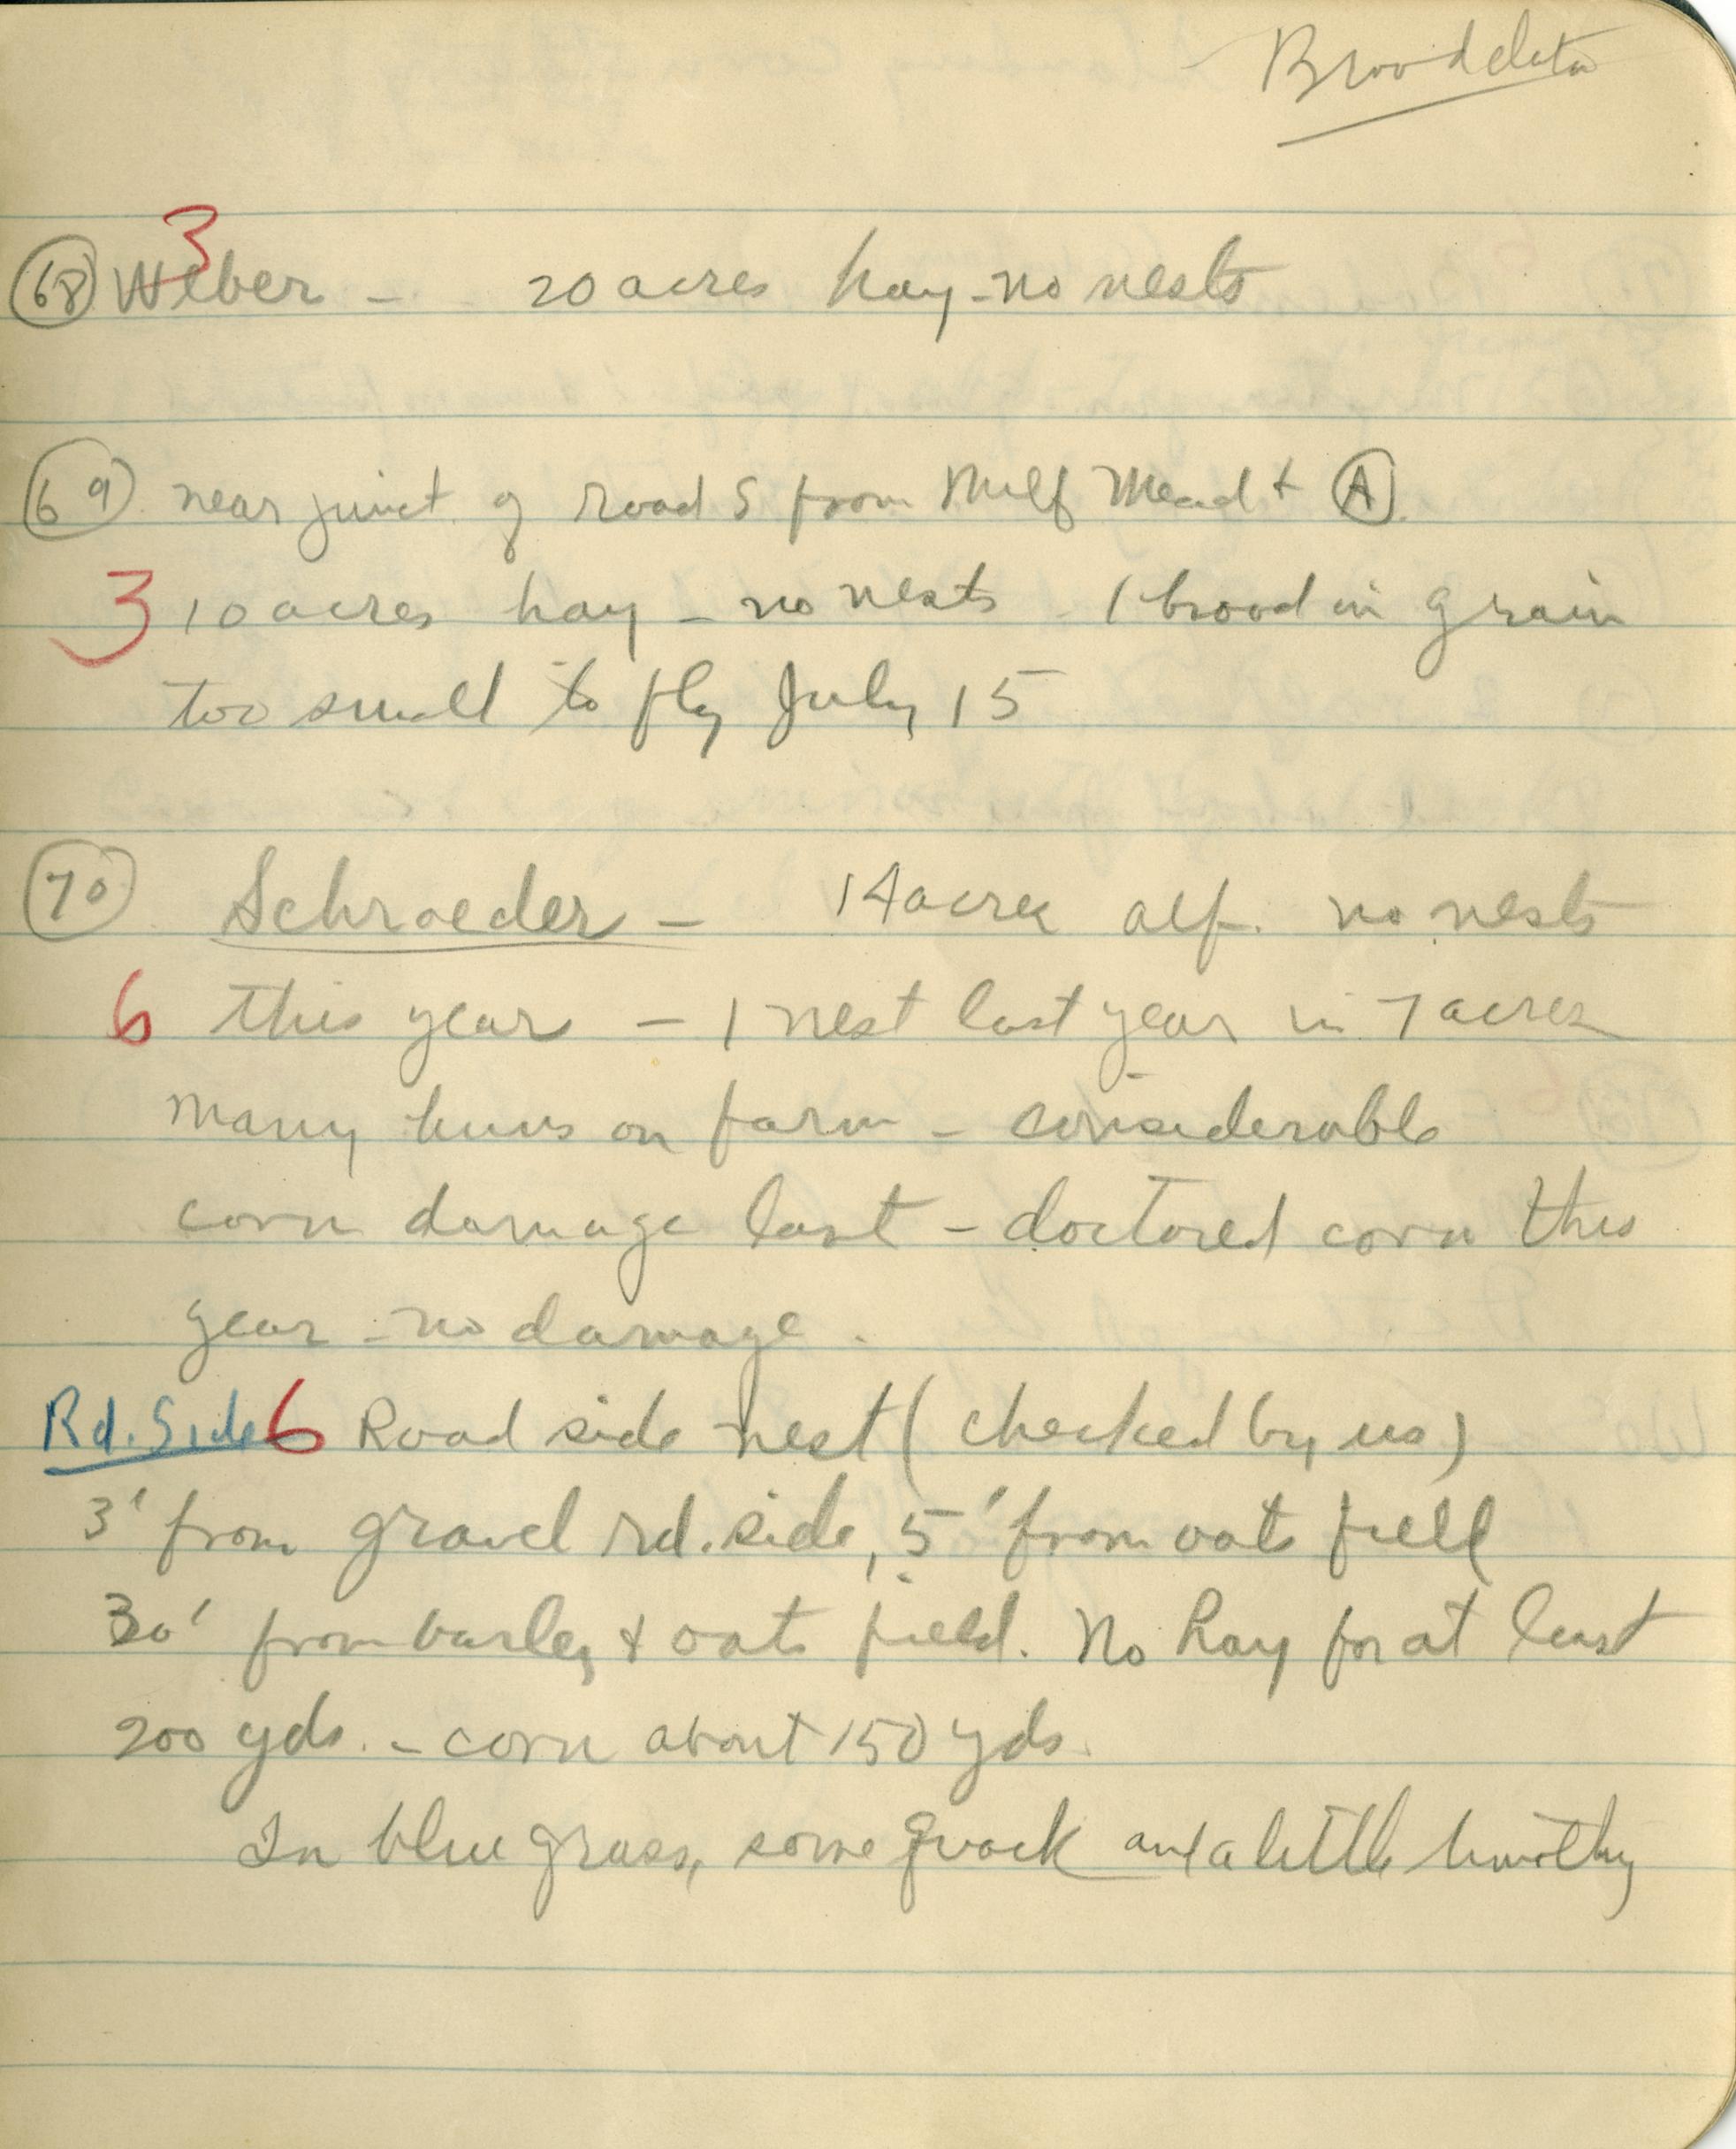 Brood data
3
68 Weber - - 20 acres hay - no nests
69 near junct. of road S from Milf Mead + A
3 10 acres hay - no nests - 1 brood in grain
too small to fly July 15
70 Schroeder - 14 acres alf. no nests
6 this year - 1 nest last year in 7 acres
many hens on farm - considerable
corn damage last - doctored corn this
year - no damage.
Rd. Side 6 Road side nest (checked by us)
3' from gravel rd. side, 5' from oats field
30' from barley + oats field. No hay for at least
200 yds. - corn about 150 yds.
In blue grass, some quack and a little timothy